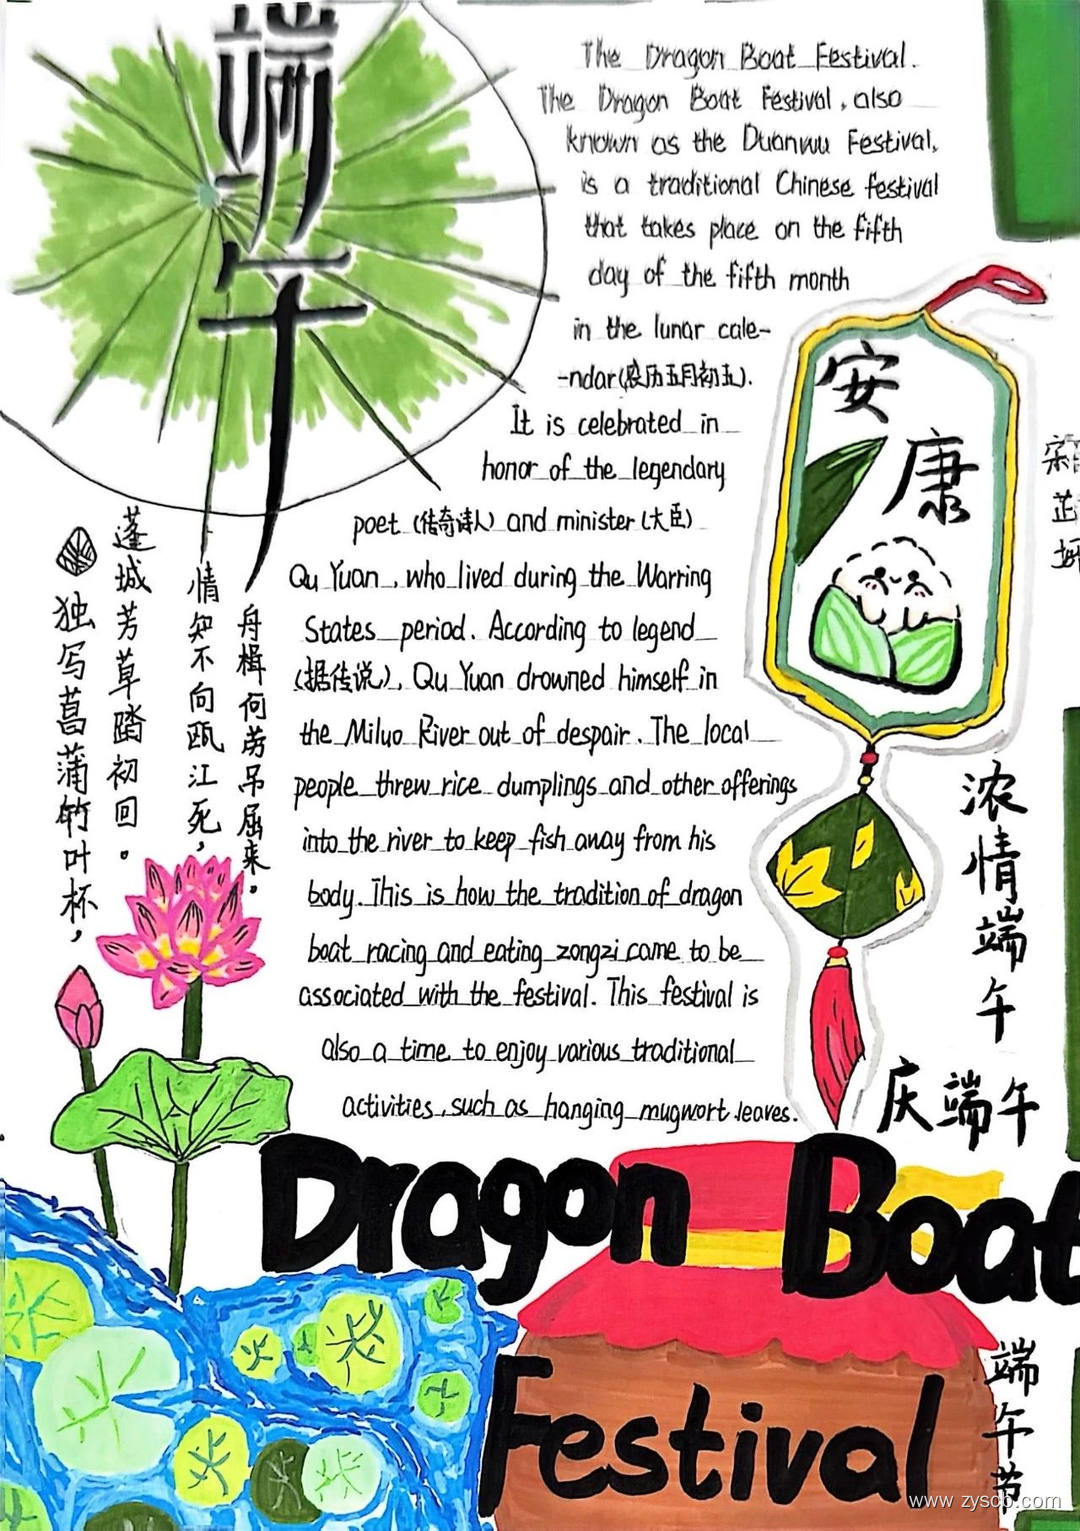 端午
The Dragon Boat Festival.
The Dragon Boat Festival, also
known as the Duanwu Festival,
is a traditional Chinese festival
that takes place on the fifth
day of the fifth month
in the lunar cale-
-ndar(农历五月初五).
It is celebrated in
honor of the legendary
poet (传奇诗人) and minister (大臣)
Qu Yuan, who lived during the Warring
States period. According to legend
(据传说), Qu Yuan drowned himself in
the Miluo River out of despair. The local
people threw rice dumplings and other offerings
into the river to keep fish away from his
body. This is how the tradition of dragon
boat racing and eating zongzi came to be
associated with the festival. This festival is
also a time to enjoy various traditional
activities, such as hanging mugwort leaves.
独写菖蒲竹叶杯，
蓬城芳草踏初回。
情知不向瓯江死，
舟楫何劳吊屈来。
安康
浓情端午
庆端午
Dragon Boat
Festival
端午节
www.zyscb.com